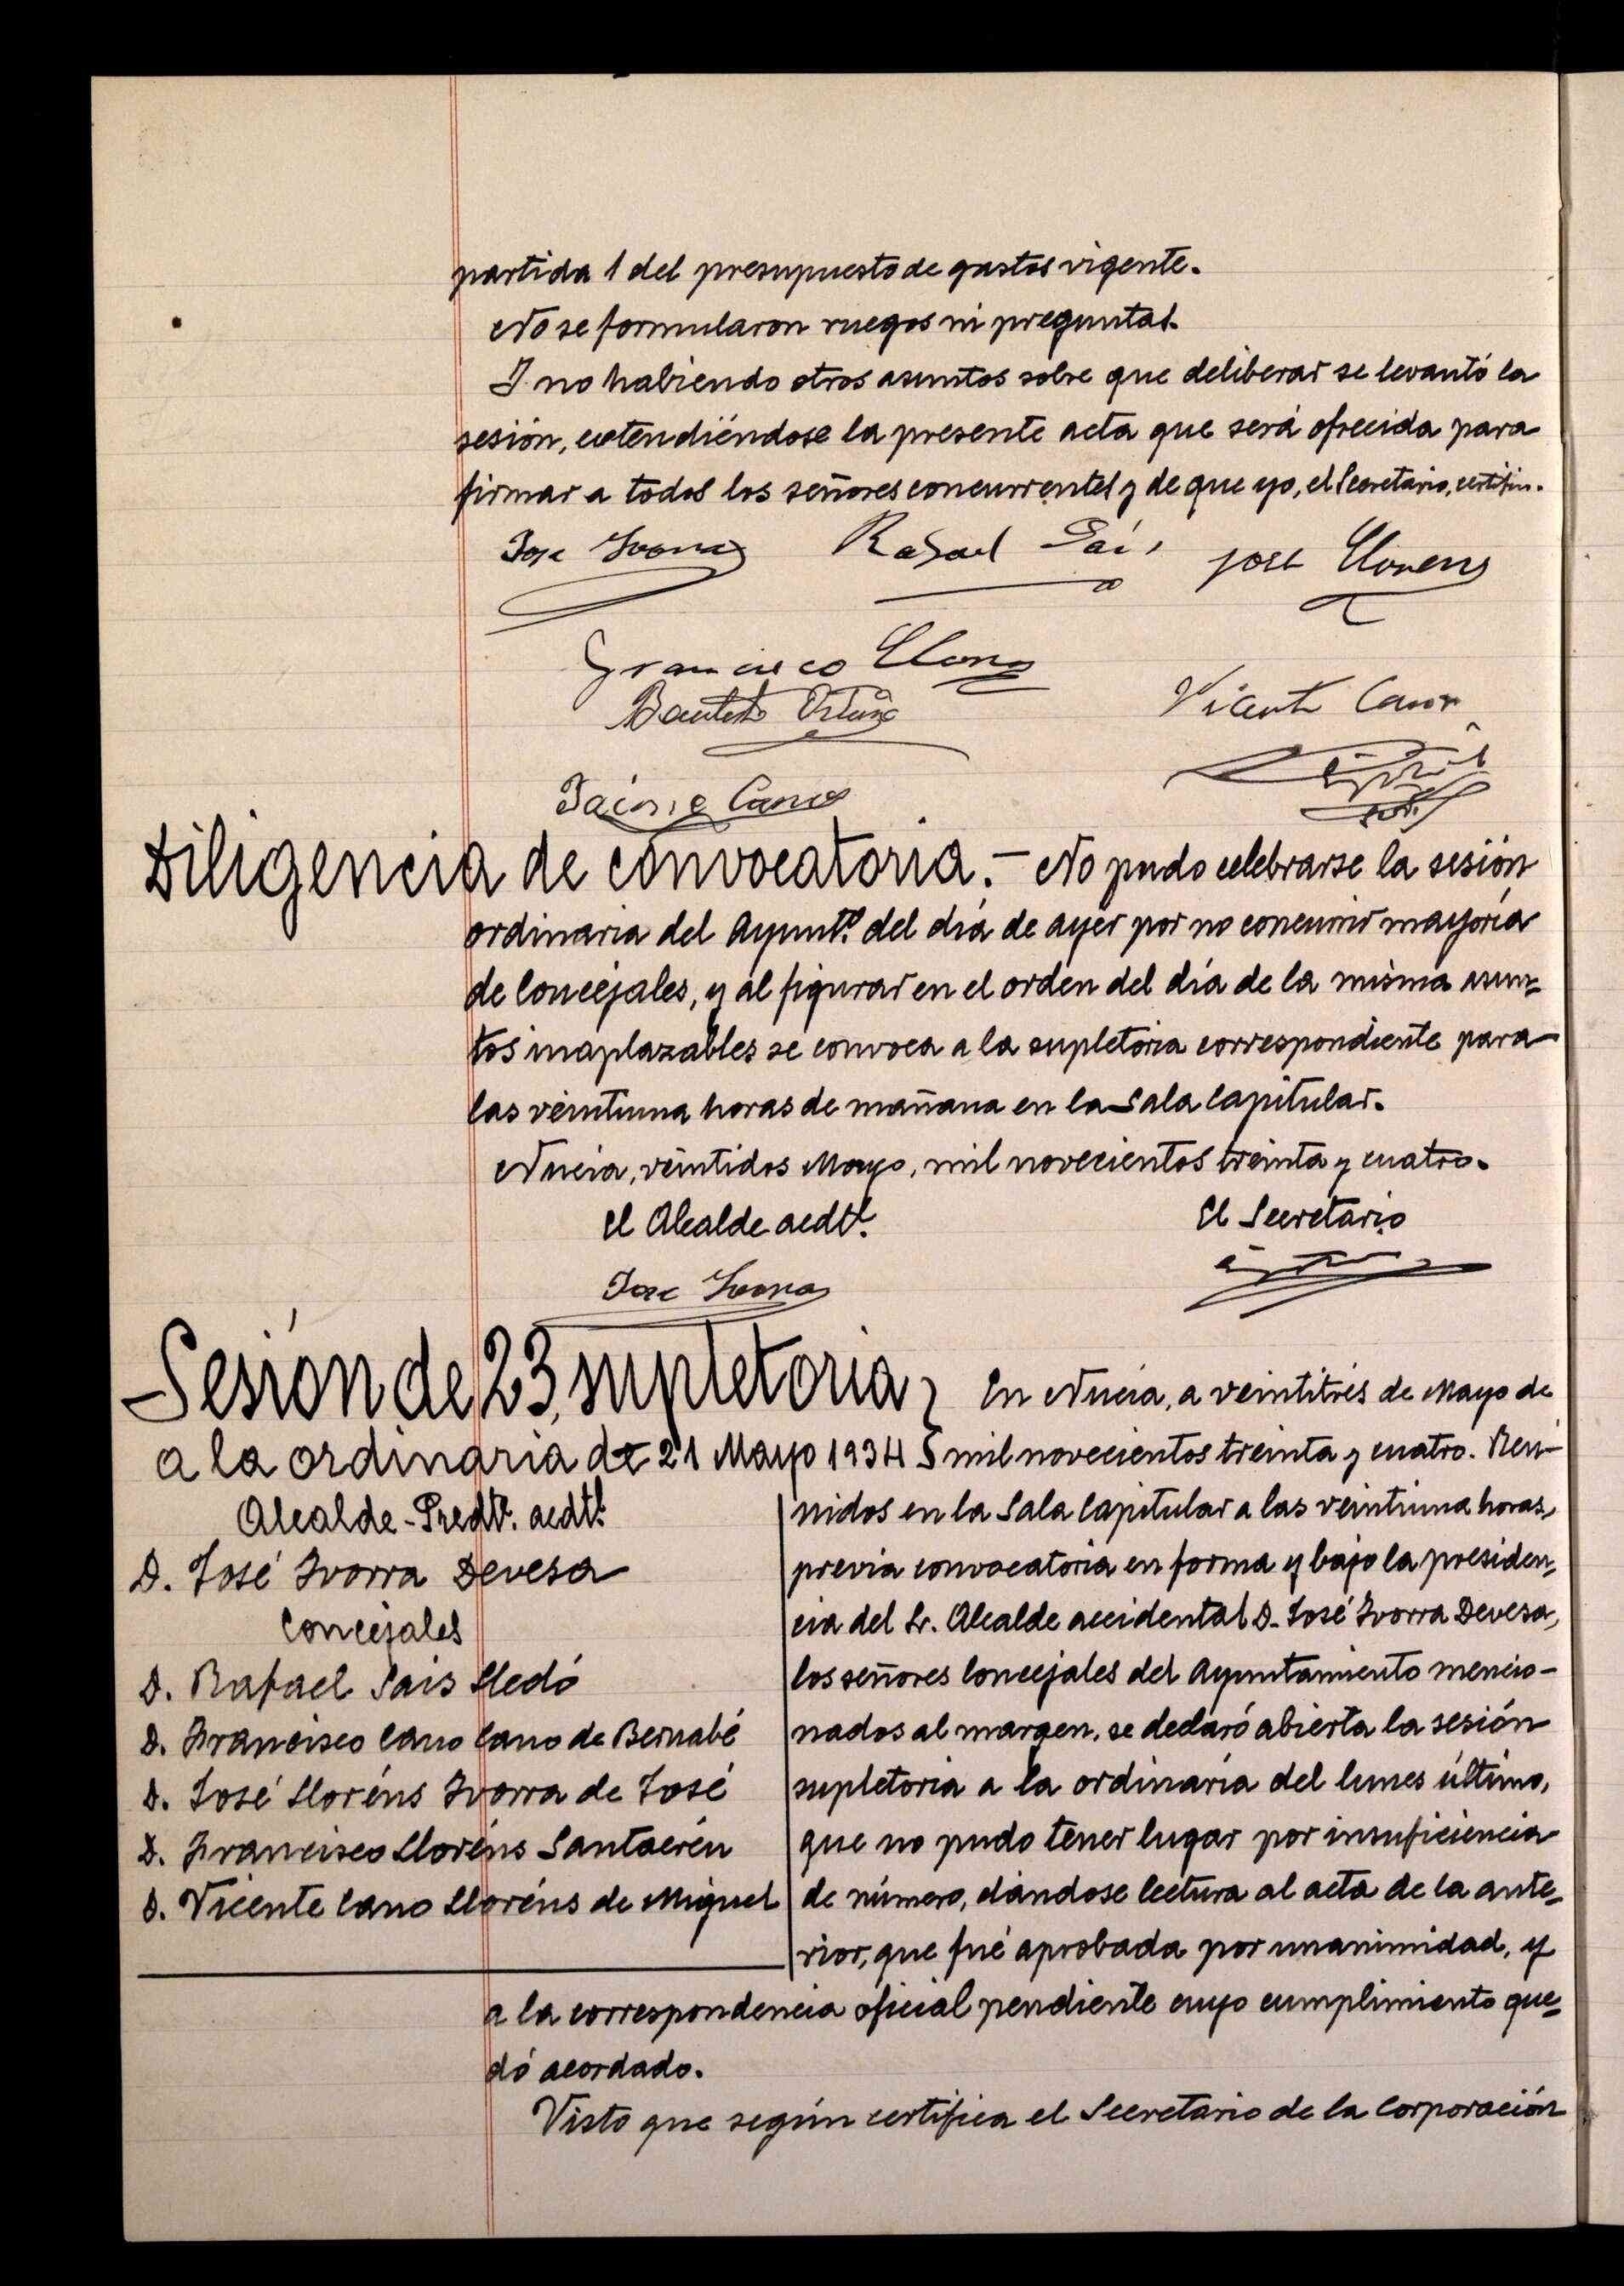 partida 1 del presupuesto de gastos vigente.
No se formularon ruegos ni preguntas.
Y no habiendo otros asuntos sobre que deliberar se levantó la
sesión, extendiéndose la presente acta que será ofrecida para
firmar a todos los señores concurrentes y de que yo, el Secretario, certifico.
Jose Ivorra Rafael Sais José Llorens
Francisco Llorens
Bautista Vicente Cano
Jaime Cano
Diligencia de convocatoria.- No pudo celebrarse la sesión
ordinaria del Ayuntº. del día de ayer por no concurrir mayoría
de Concejales, y al figurar en el orden del día de la misma asun-
tos inaplazables se convoca a la supletoria correspondiente para
las veintiuna horas de mañana en la Sala Capitular.
Nucia, veintidos Mayo, mil novecientos treinta y cuatro.
el Alcalde acdtl. El Secretario
Jose Ivorra
Sesión de 23, supletoria
a la ordinaria de 21 Mayo 1934
Alcalde-Predte. acdtl.
D. José Ivorra Devesa
Concejales
D. Rafael Sais Lledó
D. Francisco Cano Cano de Bernabé
D. José Lloréns Ivorra de José
D. Francisco Lloréns Santacréu
D. Vicente Cano Lloréns de Miguel
En Nucia, a veintitrés de Mayo de
mil novecientos treinta y cuatro. Reu-
nidos en la Sala Capitular a las veintiuna horas,
previa convocatoria en forma y bajo la presiden-
cia del Sr. Alcalde accidental D. José Ivorra Devesa,
los señores Concejales del Ayuntamiento mencio-
nados al margen, se declaró abierta la sesión
supletoria a la ordinaria del lunes último,
que no pudo tener lugar por insuficiencia
de número, dándose lectura al acta de la ante-
rior, que fué aprobada por unanimidad, y
a la correspondencia oficial pendiente cuyo cumplimiento que-
dó acordado.
Visto que según certifica el Secretario de la Corporación